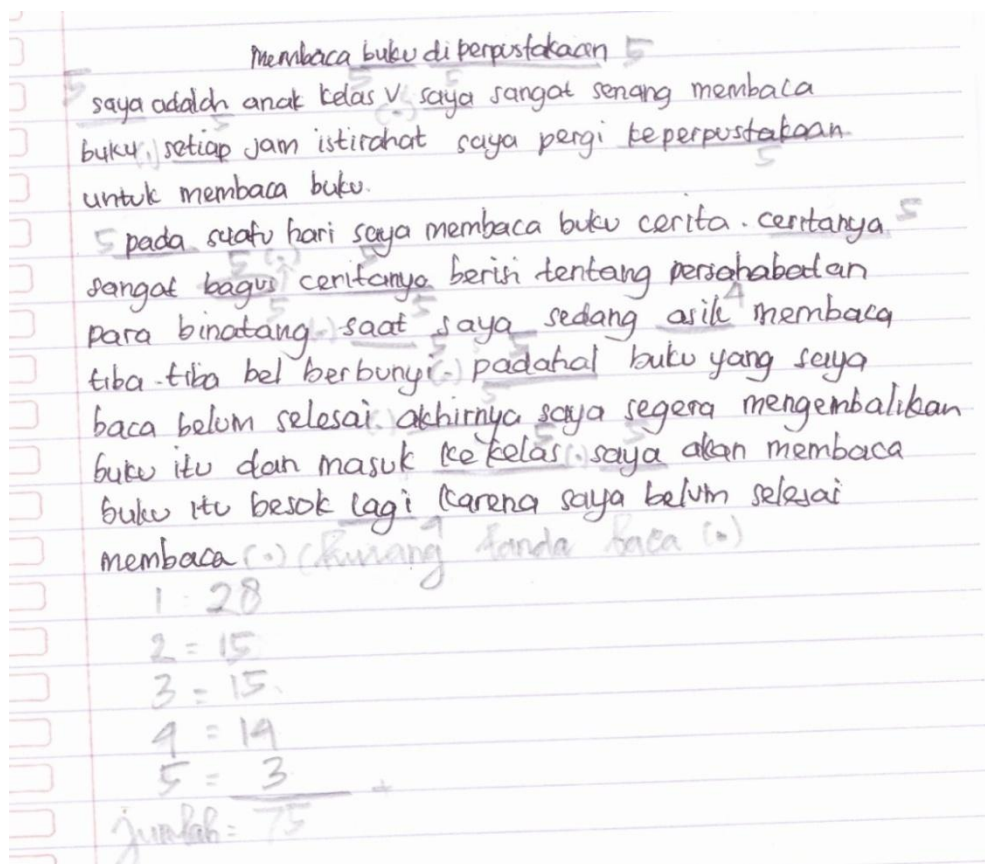 Membaca buku di perpustakaan 5
5 saya adalah anak kelas V (.) saya sangat senang membaca
buku (.) setiap jam istirahat saya pergi keperpustakaan
untuk membaca buku.
5 pada suatu hari saya membaca buku cerita. ceritanya 5
sangat bagus (.) ceritanya berisi tentang persahabatan
para binatang (.) saat saya sedang asik 4 membaca
tiba-tiba bel berbunyi (.) padahal buku yang saya
baca belum selesai (.) akhirnya saya segera mengembalikan
buku itu dan masuk ke kelas (.) saya akan membaca
buku itu besok lagi karena saya belum selesai
membaca (.) (kurang tanda baca (.)
1 = 28
2 = 15
3 = 15
4 = 14
5 = 3 +
jumlah = 75